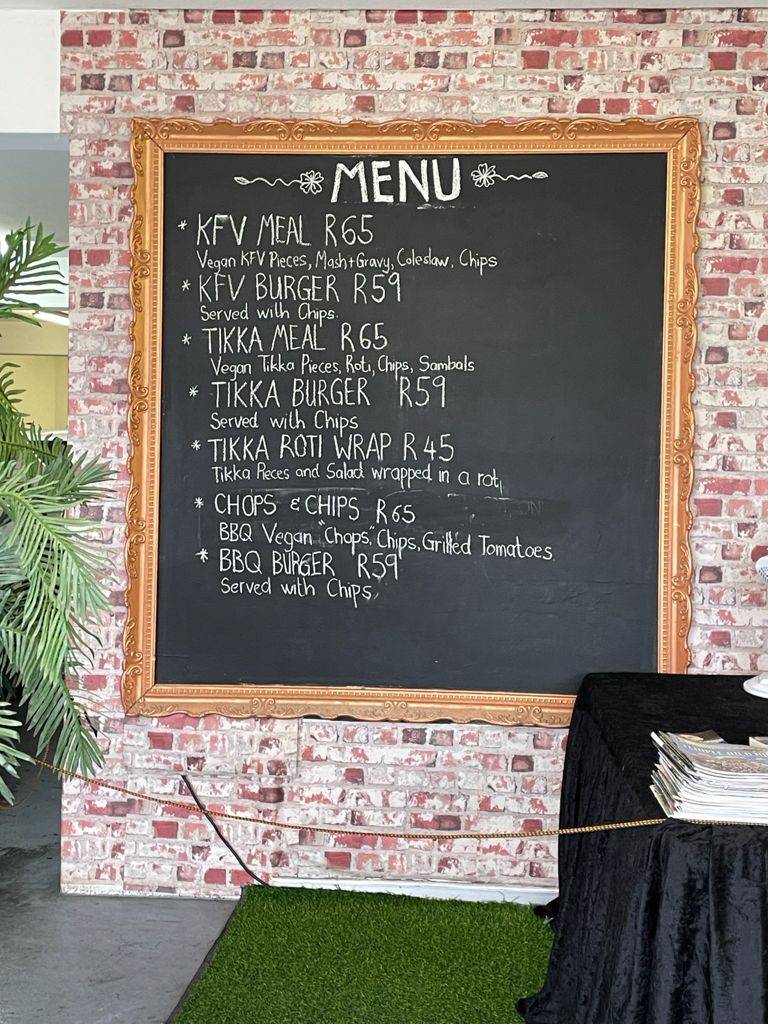 MENU
* KFV MEAL R65
Vegan KFV Pieces, Mash+Gravy, Coleslaw, Chips
* KFV BURGER R59
Served with Chips.
* TIKKA MEAL R65
Vegan Tikka Pieces, Roti, Chips, Sambals
* TIKKA BURGER R59
Served with Chips
* TIKKA ROTI WRAP R45
Tikka Pieces and Salad wrapped in a roti
* CHOPS & CHIPS R65
BBQ Vegan "Chops", Chips, Grilled Tomatoes
* BBQ BURGER R59
Served with Chips